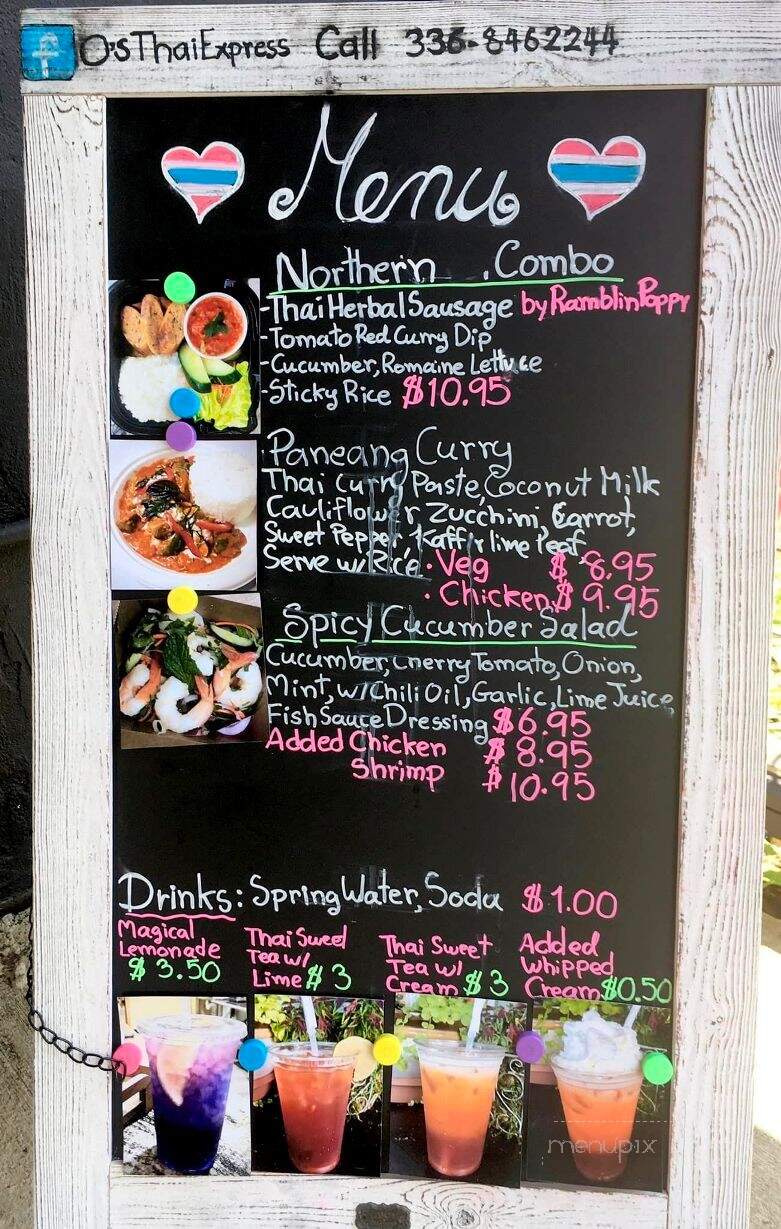 O'sThaiExpress Call 336-8462244
Menu
Northern Combo
-Thai Herbal Sausage by RamblinPoppy
-Tomato Red Curry Dip
-Cucumber, Romaine Lettuce
-Sticky Rice $10.95
Paneang Curry
Thai Curry Paste, Coconut Milk
Cauliflower, Zucchini, Carrot,
Sweet Pepper, Kaffir lime leaf,
Serve w/ Rice
• Veg $ 8.95
• Chicken $ 9.95
Spicy Cucumber Salad
Cucumber, Cherry Tomato, Onion,
Mint, w/ Chili Oil, Garlic, Lime Juice,
Fish Sauce Dressing $6.95
Added Chicken $ 8.95
Shrimp $ 10.95
Drinks: Spring Water, Soda $1.00
Magical
Lemonade
$ 3.50
Thai Sweet
Tea w/
Lime $ 3
Thai Sweet
Tea w/
Cream $ 3
Added
Whipped
Cream $0.50
menupix